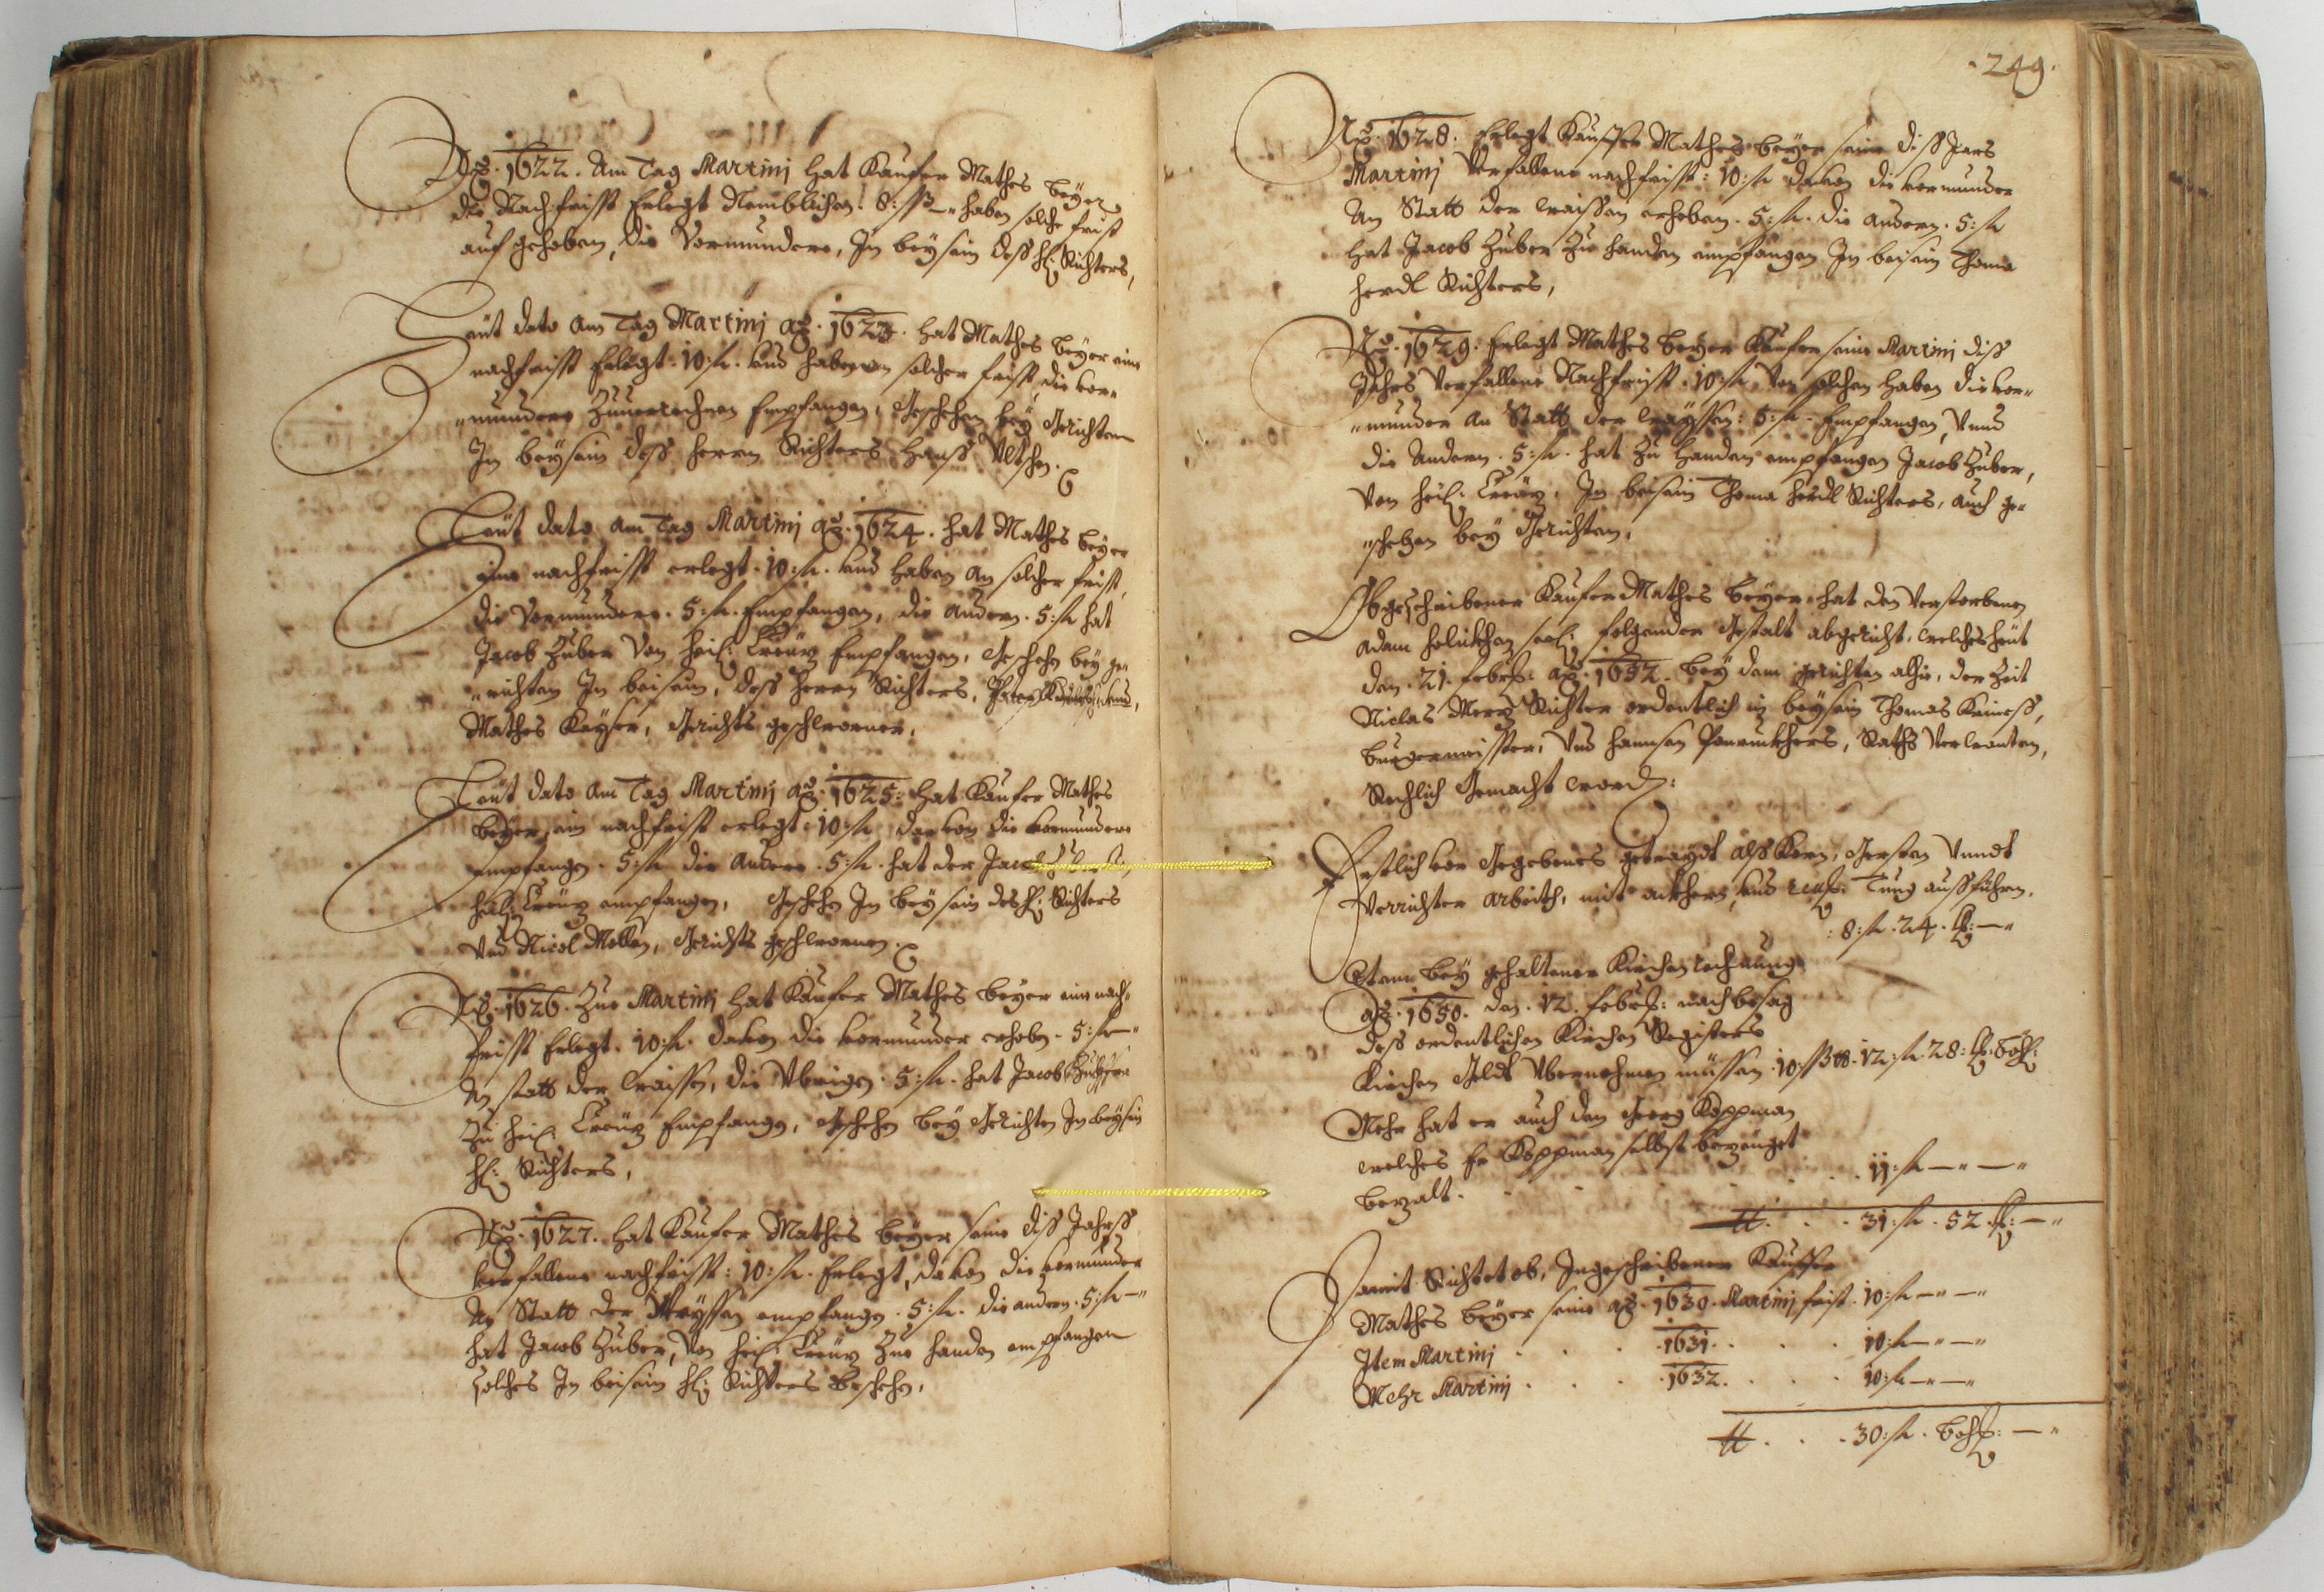 Aō. 1622. Am Tag Martinj hat Kaufer Mathes Beÿer
die Nachfrist Erlegt Nemblichen. 8: ßß — haben solche frist
auf gehoben, die Vormundere, In beysein deß H: Richters,
Heüt dato Am Tag Martinj aō. 1623. hat Mathes Beÿer eine
nachfrist Erlegt: 10: fl. und haben an solcher frist, die vor-
mundere Zuuerrechnen Empfangen, Geschehen beÿ Gerichten
In beysein deß herrn Richters Hanß
Heüt dato Am Tag Martinj aō. 1624. hat Mathes Beÿer
eine nachfrist erlegt. 10: fl. und haben an solcher frist,
die Vormundere. 5: fl. Empfangen, die andern. 5: fl hat
Jacob Zuber Von heil: Creüz Empfangen, Geschehn beÿ ge-
richten In beisein, deß herrn Richters,
Mathes Kaÿser, Gerichts geschworner,
Heüt dato Am Tag Martinj aō. 1625: hat Kaufer Mathes
Beÿer, ein nachfrist erlegt. 10: fl, daruon die vormundere
empfangen. 5: fl die andern. 5: fl. hat der Jacob
heil: Creüz empfangen, Geschehn In beysein des H: Richters
Und Nicol Mollen, Gerichts geschwornen.
Aō. 1626. Zue Martinj hat Kaufer Mathes Beÿer eine nach-
frist Erlegt. 10: fl. dauon die vormunder erhoben. 5: fl —
An statt der waissen, die Vbrigen. 5: fl. hat Jacob Zuber
Zu heil: Creüz Empfangen, Geschehen beÿ Gerichten In beysein
H: Richters,
Aō. 1627. hat Kaufer Mathes Beÿer seine diß Jahrß
verfallene nachfrist: 10: fl. Erlegt, dauon die vormunder
An Statt der Waÿssen empfangen. 5: fl. die andern. 5: fl —
hat Jacob Zuber, Von heil: Creüz Zue handen empfangen
solches In beisein H: Richters beschehn,
. 249.
Aō. 1628. Erlegt Kauffer Mathes Beÿer seine diß Jars
Martinj Verfallene nachfrist: 10: fl dauon die vormunder
An Statt der waissen erheben. 5: fl. die andern. 5: fl
hat Jacob Zuber Zu handen empfangen In beisein Thoma
Herdl Richters,
Aō. 1629. Erlegt Mathes Beÿer Kaufer seine Martinj diß
Jahrs Verfallene Nachfrist. 10: fl, Von solchen haben die vor-
munder An Statt der Waÿssen: 5: fl. Empfangen, Unnd
die Andern. 5: fl. hat Zu handen empfangen Jacob Zuber,
Von heil: Creüz, In beisein Thoma Herdl Richters, auch ge-
schehen beÿ Gerichten,
Obgeschribener Kaufer Mathes Beÿer, hat den Verstorbenen
Adam seel: folgender Gestalt abgericht, welches heüt
den. 21. Febr: aō. 1652. beÿ dem gerichten alhie, der Zeit
Niclas Merz Richter ordentlich in beysein Thomas
burgermeister, Und Hannsen Raths Verwanten,
Richtig Gemacht word:
Erstlich vor Gegebenes getraÿdt alß Korn, Gersten Unndt
Verrichter arbeith, mit ackhern, und Tung außführen.
: 8: fl. 24. kr: —
Item beÿ gehaltener Kirchen rechnung
aō. 1650. den. 12. Febr: nach besag
deß ordentlichen Kirchen Registers
Kirchen Geldt Vbernehmen müssen. 10. ßß 12: fl. 28: kr. Böh:
Mehr hat er auch dem Georg Koppman
welches Er Koppman selbst bezeüget
bezalt. . . . . . 11: fl — —
tt. . . 31: fl. 52. kr: —
Hiemit Richtet ob, Ingeschribener Kauffer
Mathes Beÿer seine aō. 1630. Martinj frist. 10: fl — —
Item Martinj . . . 1631. . . . 10: fl — —
Mehr Martinj . . . 1632. . . . 10: fl — —
tt. . . 30: fl. Böh: —